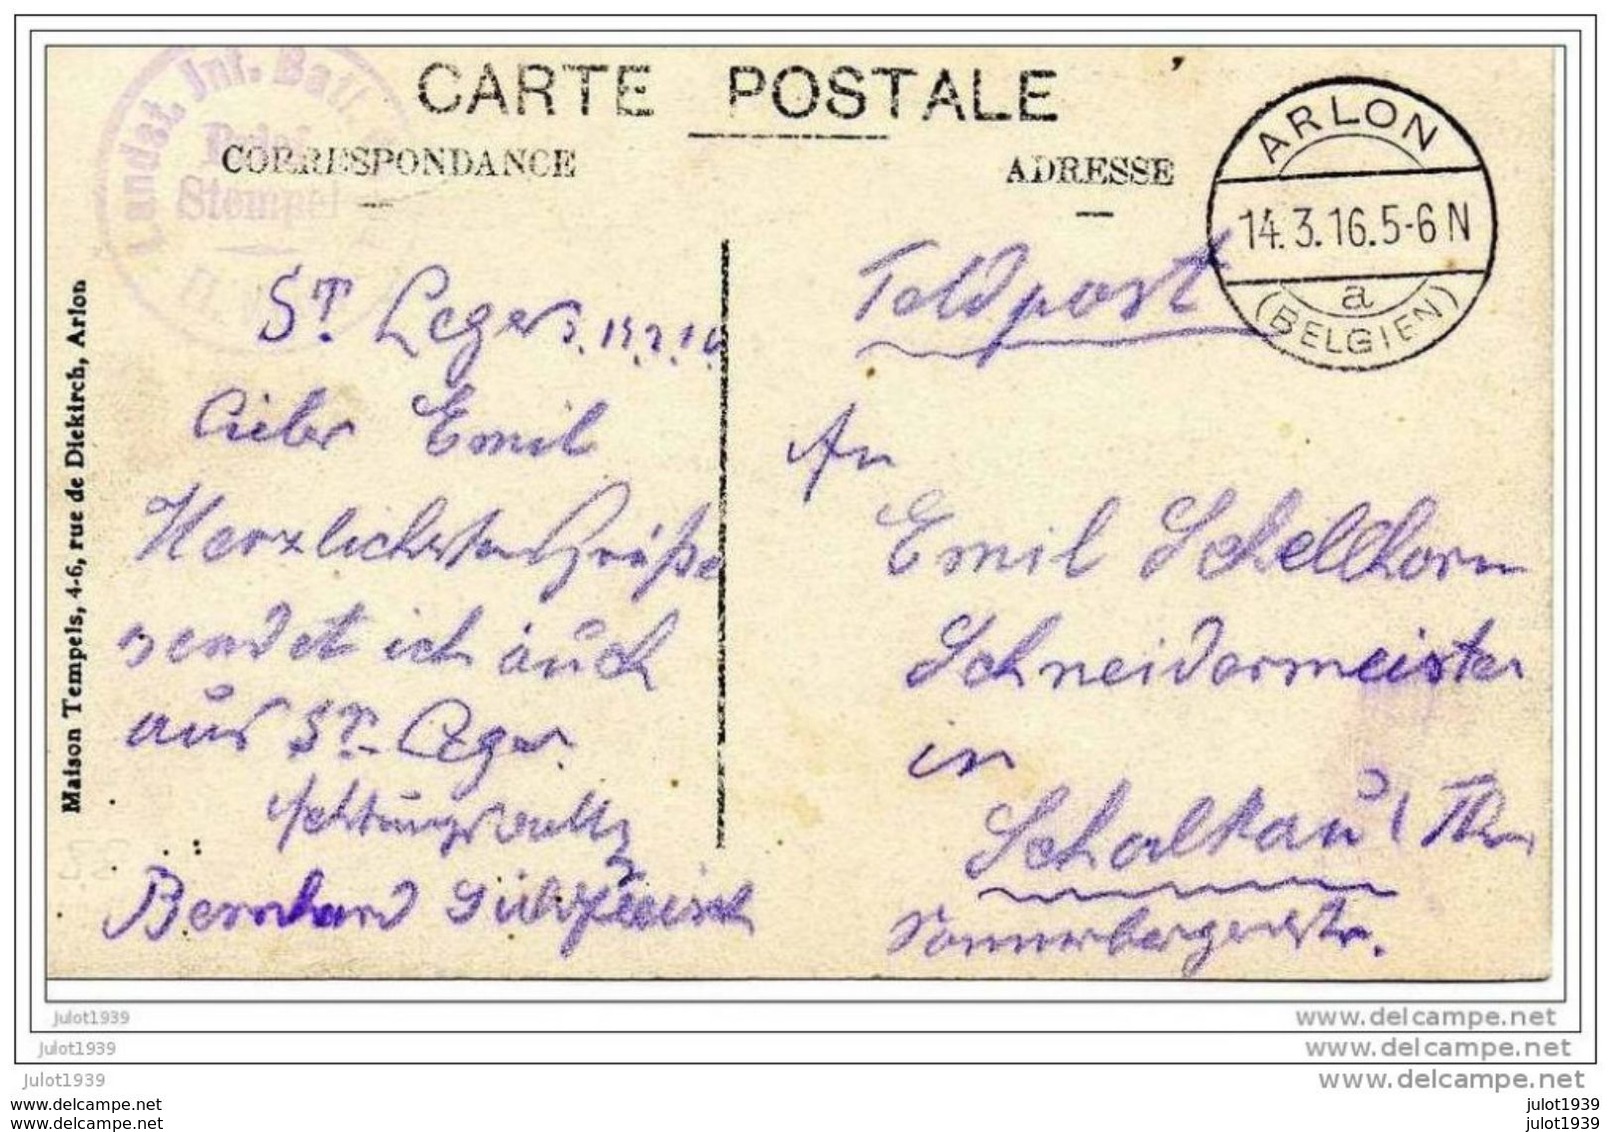 CARTE POSTALE
CORRESPONDANCE
ADRESSE
Landst. Inf. Batl.
Brief
Stempel
ARLON
14.3.16.5-6 N
a
(BELGIEN)
Maison Tempels, 4-6, rue de Diekirch, Arlon
St. Leger
Lieber Emil
Herzlichsten Grüße
sendet ich auch
aus St. Leger.
Achtungsvoll
Bernhard
Feldpost
An
Emil Schellhorn
Schneidermeister
in
Schalkau
Sonnebergerstr.
julot1939
www.delcampe.net
julot1939
www.delcampe.net
julot1939
www.delcampe.net
www.delcampe.com
julot1939
www.delcampe.com
julot1939